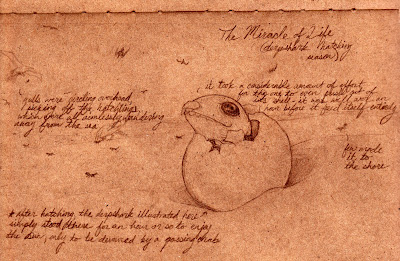 The Miracle of Life
(derpshark hatching
season)
gulls were circling overhead
picking off the hatchlings
which were all aimlessly wandering
away from the sea
it took a considerable amount of effort
for the one to even phase out of
its shell. it was well over an
hour before it freed itself entirely
few made
it to
the shore
* after hatching, the derpshark illustrated here
simply stood there for an hour or so to enjoy
the sun, only to be devoured by a passing